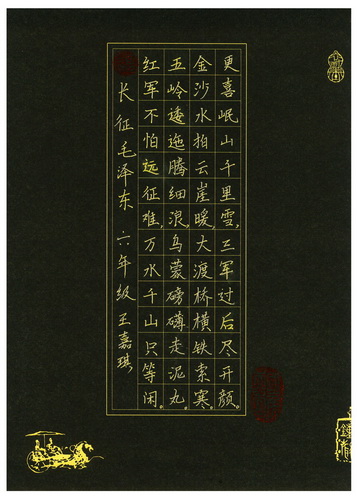 长征 毛泽东 六年级 王嘉琪
红军不怕远征难，万水千山只等闲。
五岭逶迤腾细浪，乌蒙磅礴走泥丸。
金沙水拍云崖暖，大渡桥横铁索寒。
更喜岷山千里雪，三军过后尽开颜。